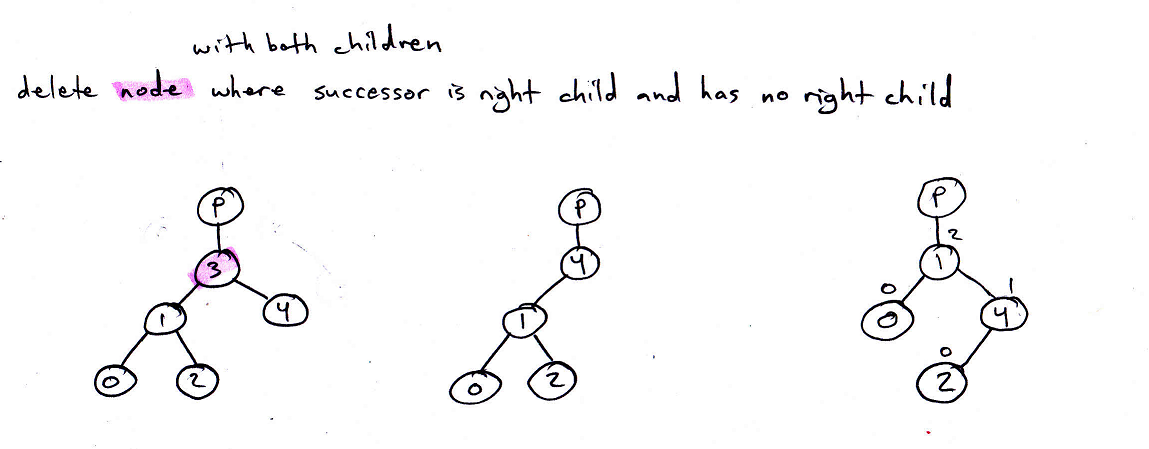 with both children
delete node where successor is right child and has no right child
P P P
3 4 2
1
1 4 1 0 1
0 4
0 2 0 2 0
2